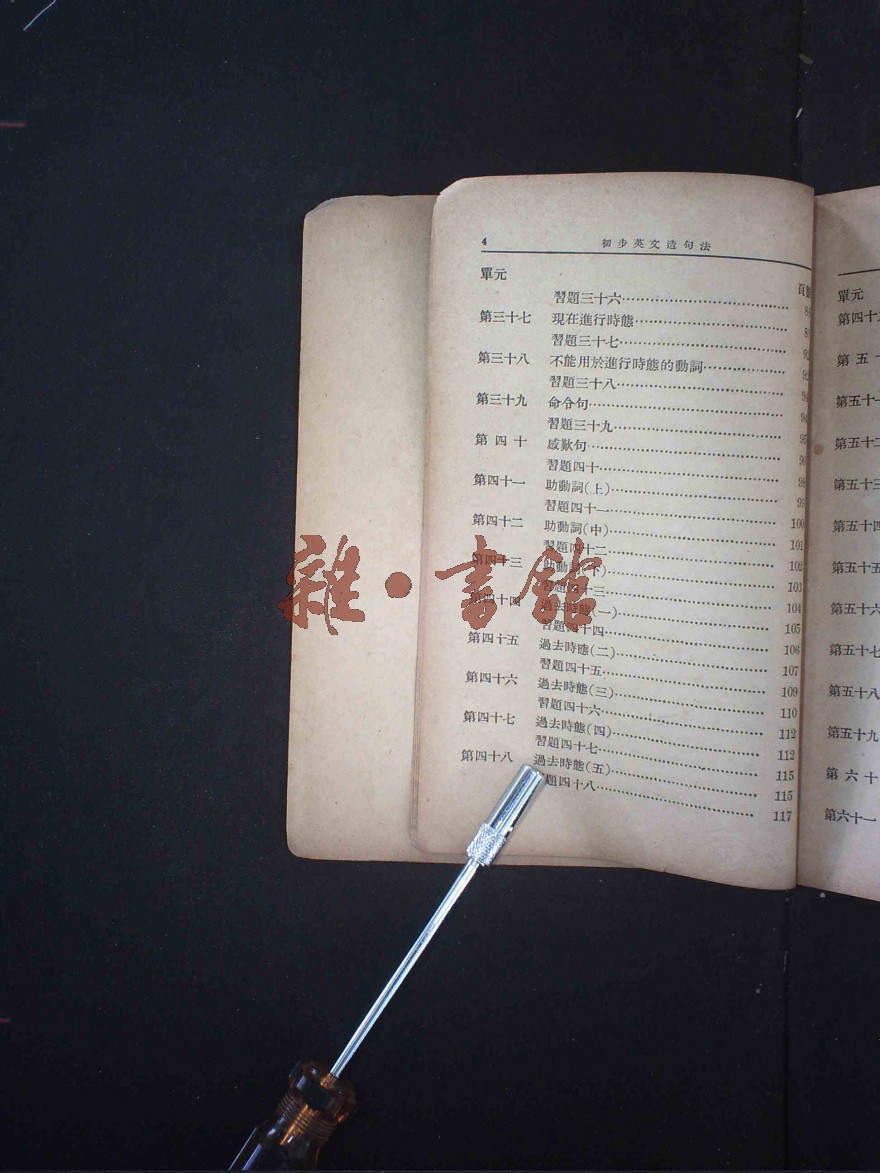 4 初步英文造句法
單元
習題三十六
第三十七 現在進行時態
習題三十七 92
第三十八 不能用於進行時態的動詞 93
習題三十八 94
第三十九 命令句 94
習題三十九 95
第四十 感歎句 96
習題四十 98
第四十一 助動詞(上) 99
習題四十一 100
第四十二 助動詞(中) 101
習題四十二 102
第四十三 助動詞(下) 103
習題四十三 104
第四十四 過去時態(一) 105
習題四十四 106
第四十五 過去時態(二) 107
習題四十五 109
第四十六 過去時態(三) 110
習題四十六 112
第四十七 過去時態(四) 112
習題四十七 115
第四十八 過去時態(五) 115
題四十八 117
單元
第四十
第五十
第五十一
第五十二
第五十三
第五十四
第五十五
第五十六
第五十七
第五十八
第五十九
第六十
第六十一
雜·書館